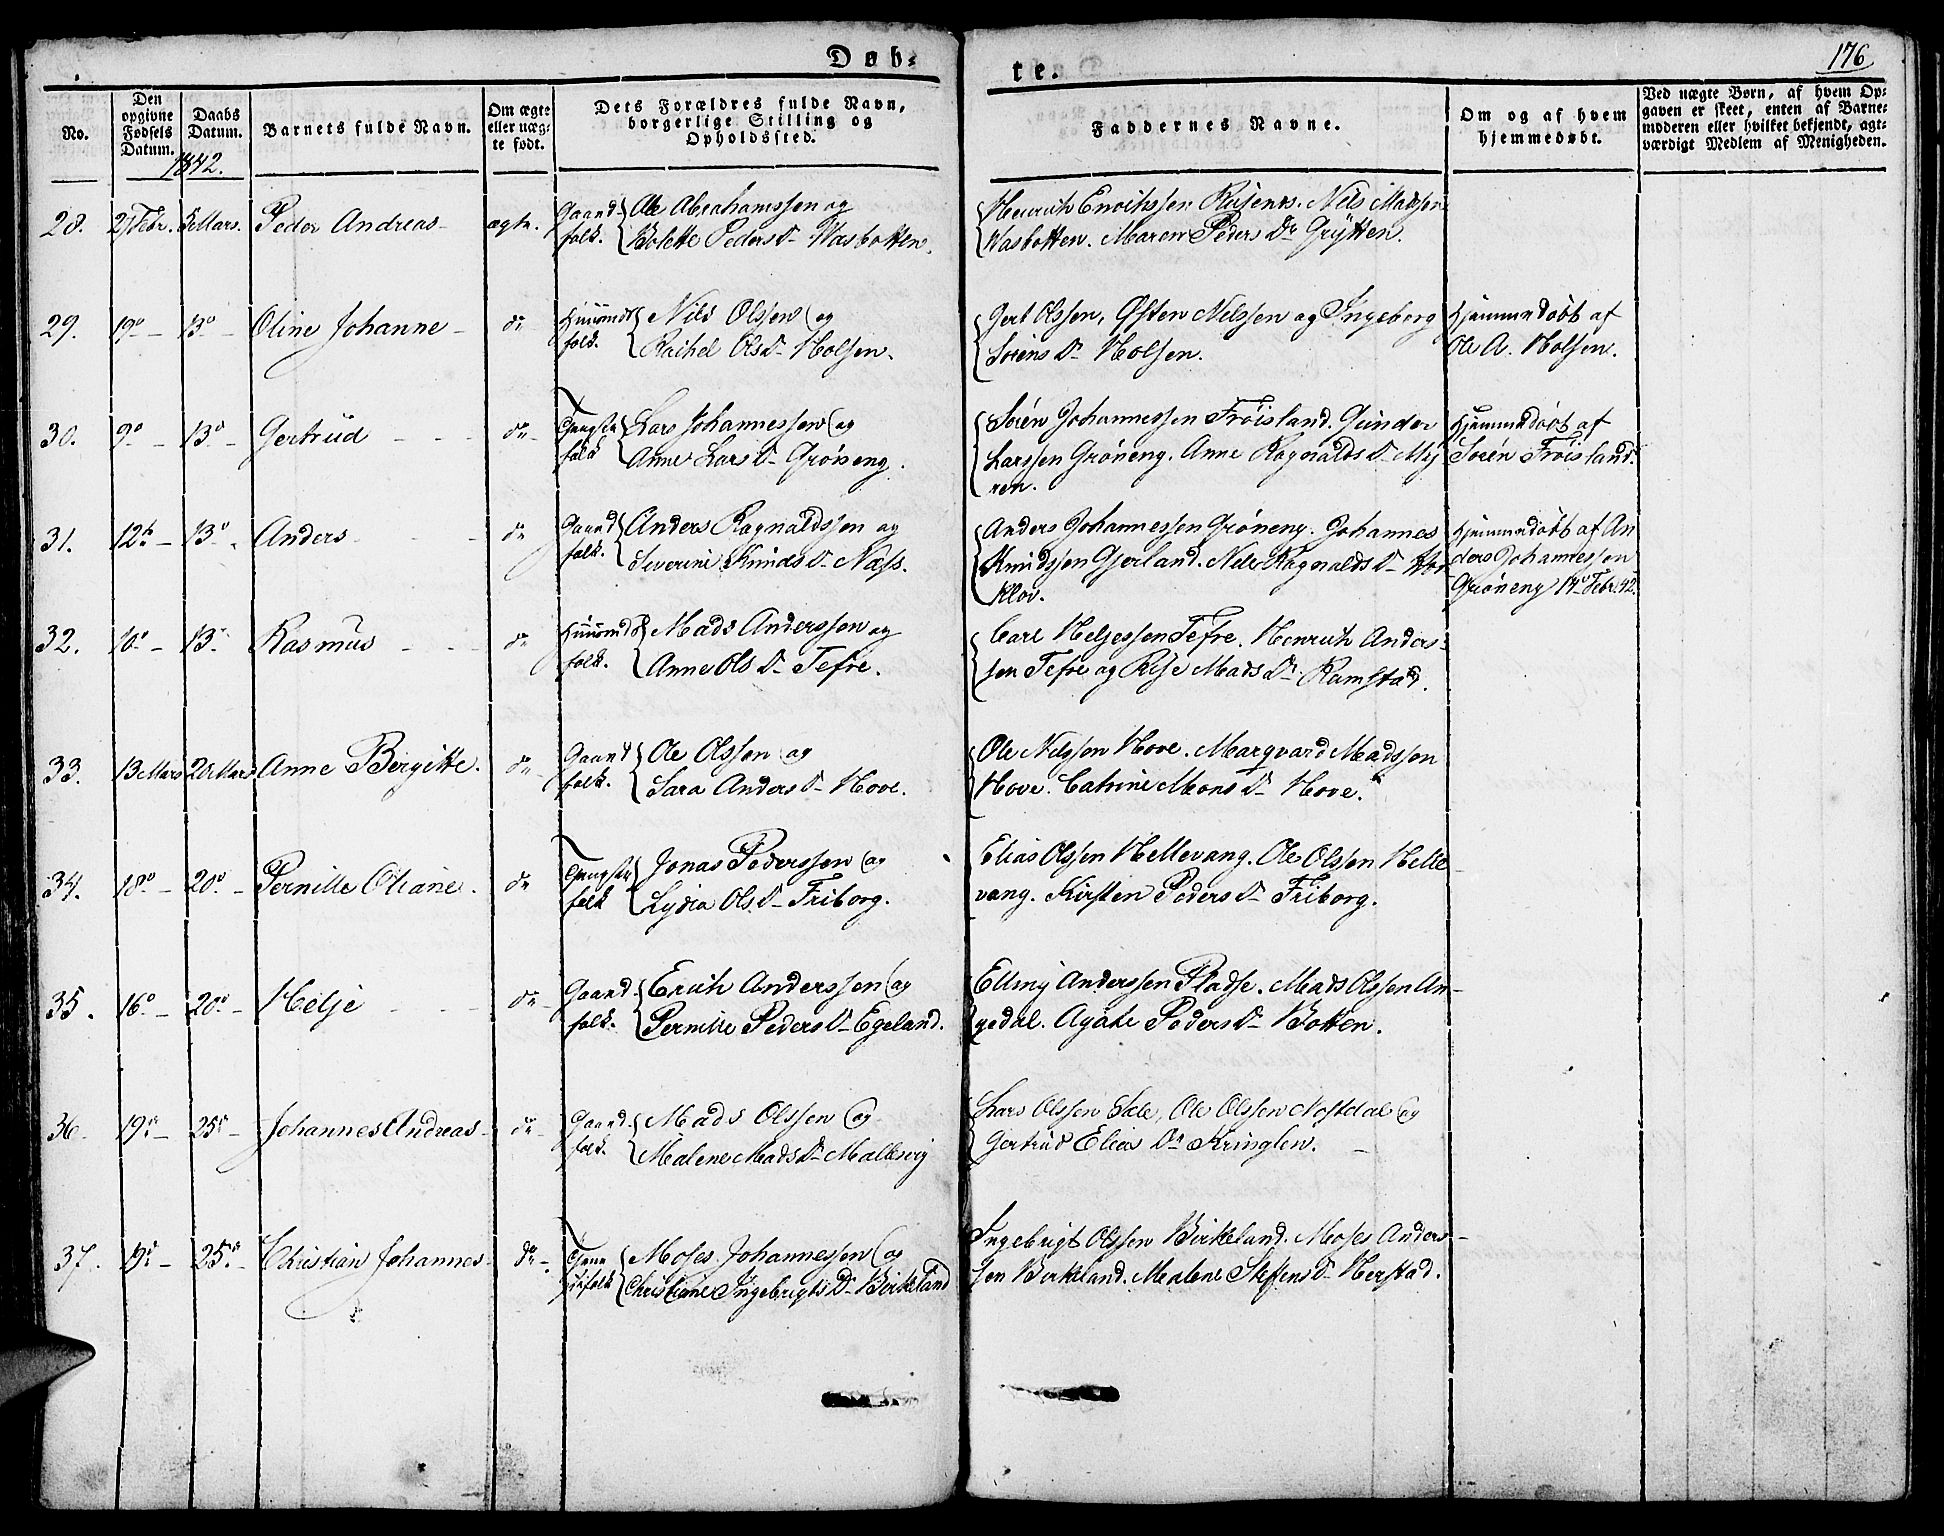 Døb-
te.
176
No.
Den opgivne Fødsels Datum.
Daabs Datum.
Barnets fulde Navn.
Om ægte eller uæg-te født.
Dets Forældres fulde Navn, borgerlige Stilling og Opholdssted.
Faddernes Navne.
Om og af hvem hjemmedøbt.
Ved uægte Børn, af hvem Op-gaven er skeet, enten af Barne-moderen eller hvilket bekjendt, agt-værdigt Medlem af Menigheden.
1842.
28. 27 Febr. Mars. Peder Andreas ægte. Gaard folk.
Ole Abrahamssen og
Bolette Peders D. Wasbotten.
Henrich Enochssen . Nils Madssen
Wasbotten. Maren Peders Dr Grÿtten.
29. 19 13 Oline Johanne do Huusmds folk.
Nils Olssen og
Rachel Ols D. Holsen.
Gert Olssen, Østen Nilssen og Ingeborg
Sørens D. Holsen.
Hjemmedøbt af
Ole A. Holsen.
30. 9 13 Gertrud do folk
Lars Johannessen og
Anne Lars D. Grøneng.
Sørèn Johannessen Frøisland. Gunder
Larssen Grøneng. Anne Ragnalds D. Mÿ
ren.
Hjemmedøbt af
Sørèn Frøisland.
31. 12 13 Anders do Gaard folk.
Anders Ragnaldssen og
Severine Knuds D. Næss.
Anders Johannessen Grøneng. Johannes
Knudssen Gjerland. Ragnalds D.
kløv.
Hjemmedøbt af An
ders Johannessen
Grøneng 14 Febr. 42.
32. 10 13 Rasmus do Huusmds folk.
Mads Anderssen og
Anne Ols D. Tefre.
Carl Heljessen Tefre. Henrich Anders-
sen Tefre og Mads D. Ramstad.
33. 13 Mars 20 Mars Anne Bergitte. do Gaard folk.
Ole Olssen og
Sara Anders D. Hove.
Ole Nilssen Hove. Marqvard Madssen
Hove. Catrine Mons D. Hove.
34. 18 20 Pernille Oliane. do folk
Jonas Pederssen og
Lydia Ols D. Friborg.
Elias Olssen Hellevang. Ole Olssen Helle-
vang. Kirsten Peders D. Friborg.
35. 16 20 Helje do Gaard folk.
Erich Anderssen og
Pernille Peders D. Egeland.
Elling Anderssen Fladse. Mads Olssen An-
gedal. Agate Peders D. Botten.
36. 19 25 Johannes Andreas do Gaard folk.
Mads Olssen og
Malene Mads D. Mallesvig
Lars Olssen , Ole Olssen og
Gertrud Elias Dr Kringlen.
37. 19 25 Christian Johannes do Tjene stefolk
Moses Johannessen og
Christiane Ingebrigts D. Birkeland
Ingebrigt Olssen Birkeland. Moses Anders-
sen Birkeland. Malene Steffens D. Herstad.